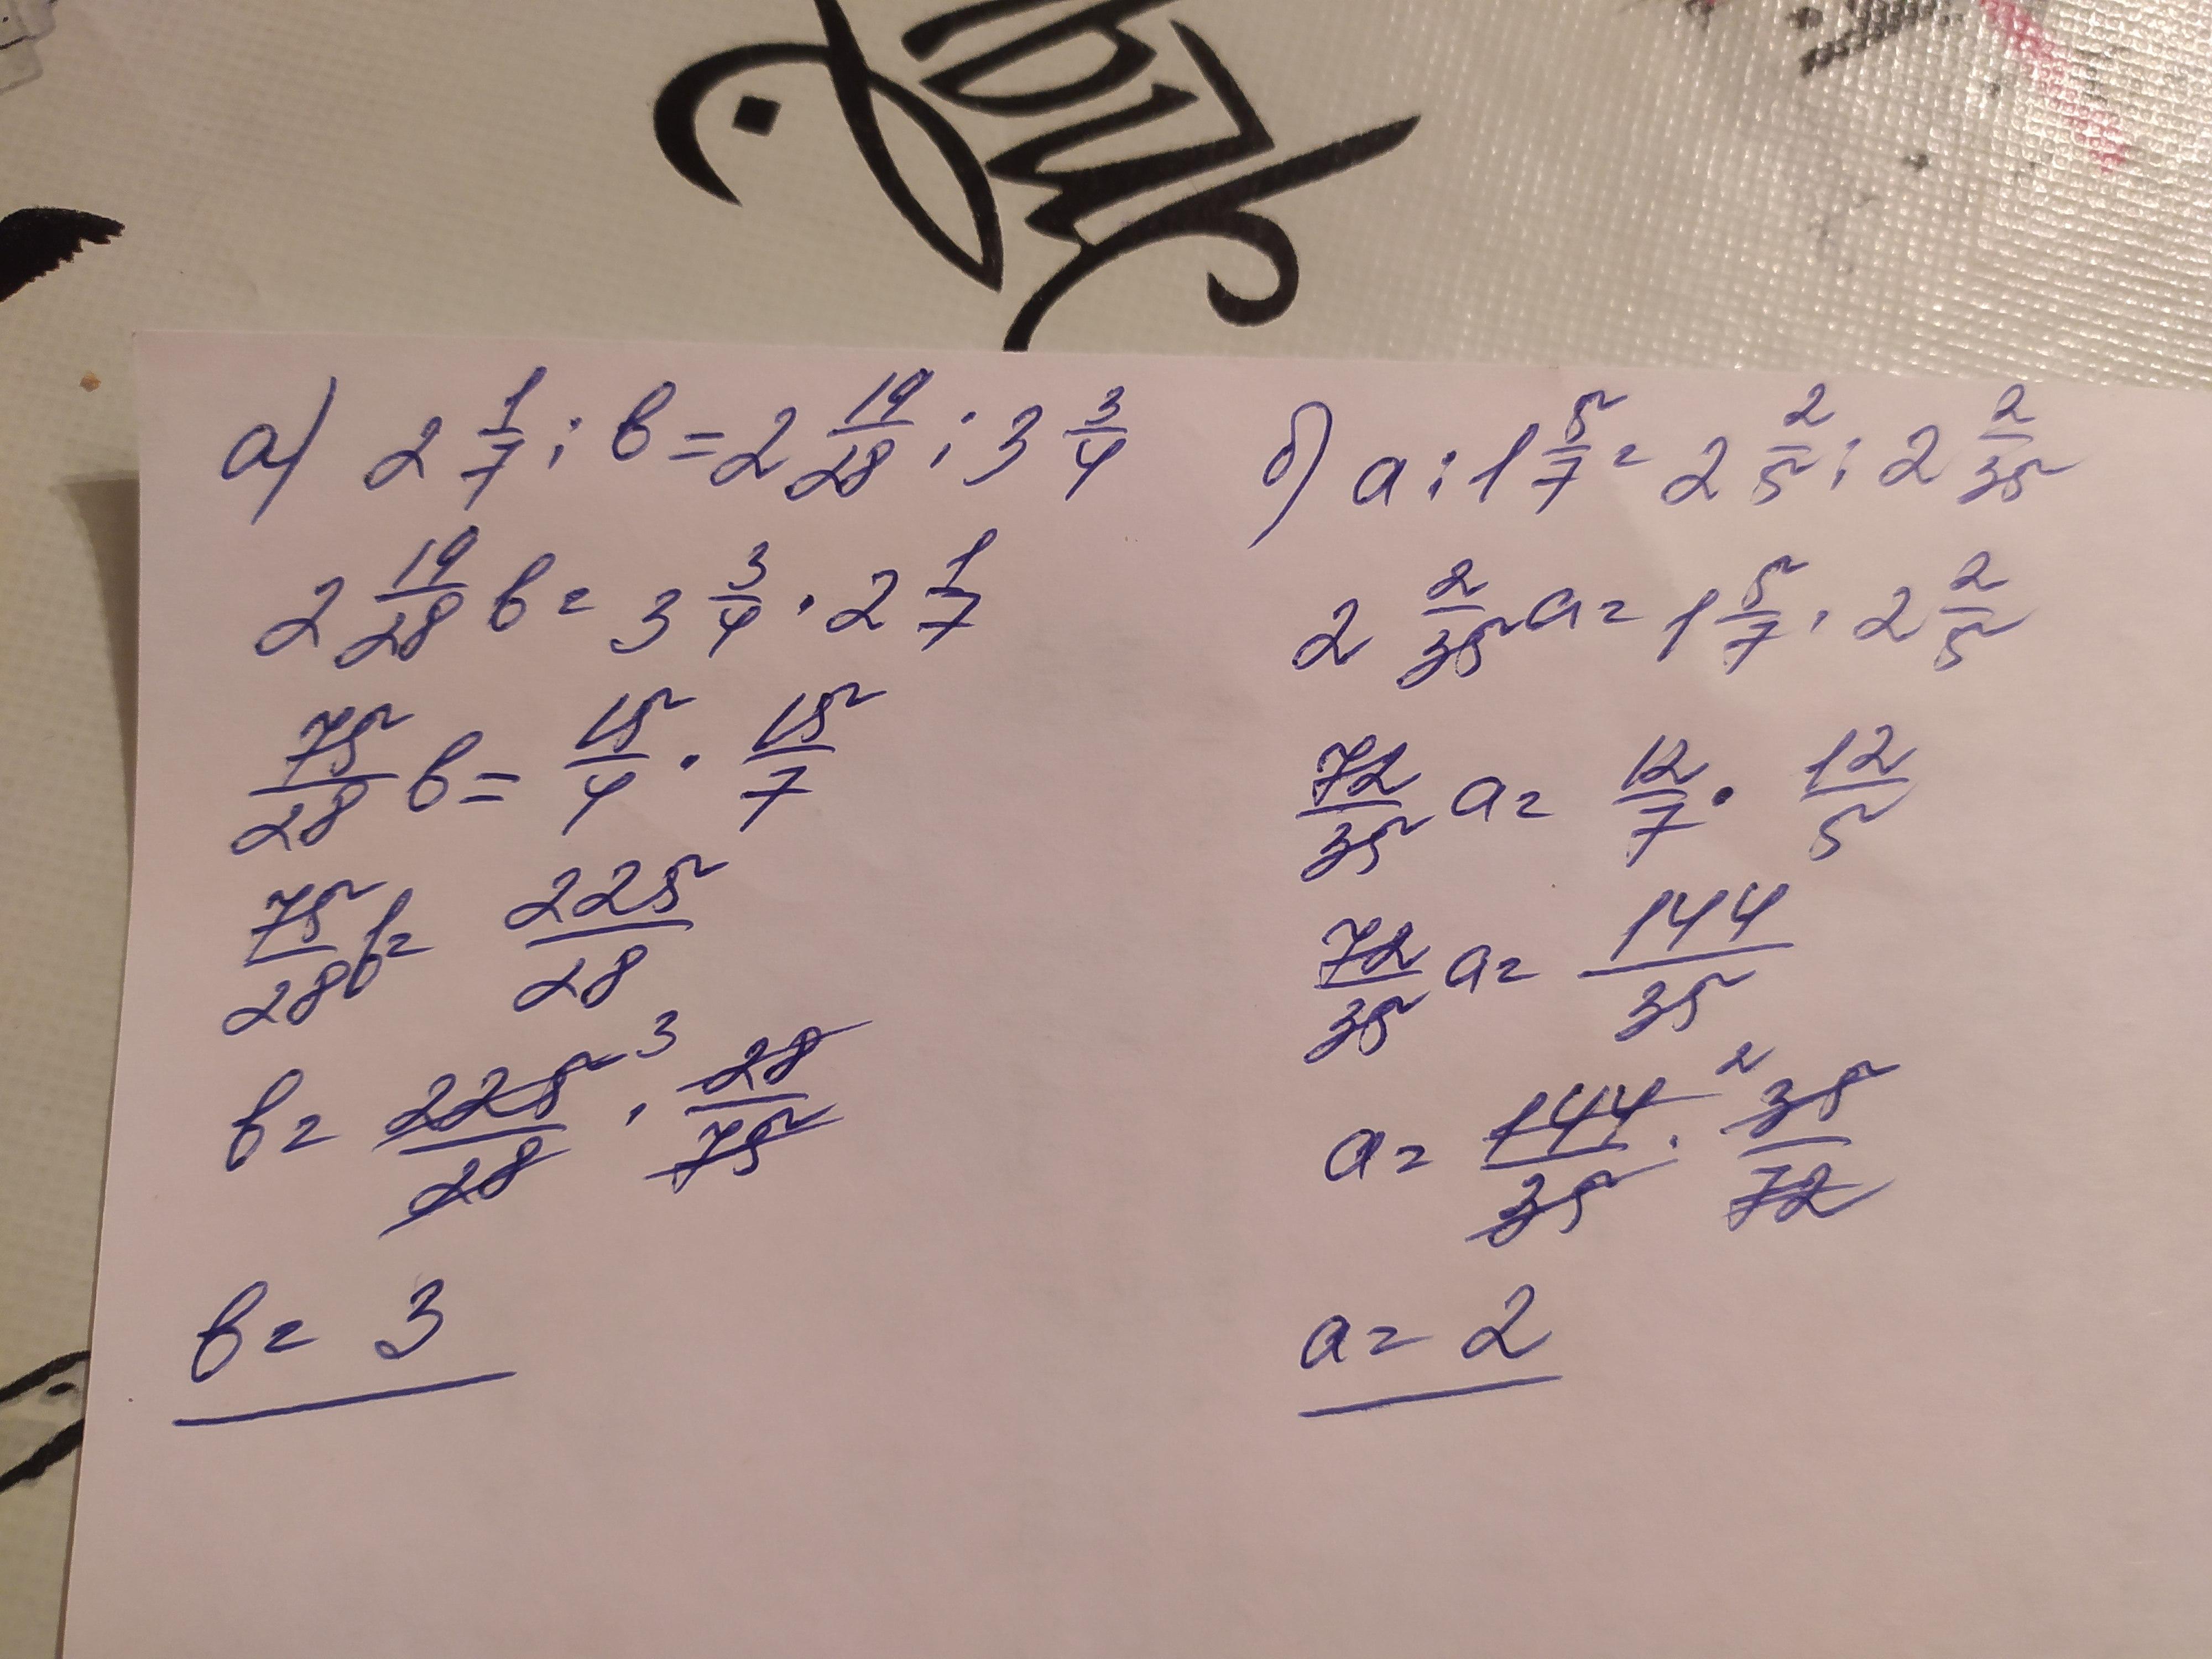 а) 2 1/7 : b = 2 19/28 : 3 3/4
2 19/28 b = 3 3/4 · 2 1/7
75/28 b = 15/4 · 15/7
75/28 b = 225/28
b = 225/28 · 28/75 3
b = 3
б) a : 1 5/7 = 2 2/5 : 2 2/35
2 2/35 a = 1 5/7 · 2 2/5
72/35 a = 12/7 · 12/5
72/35 a = 144/35
a = 144/35 · 35/72 2
a = 2